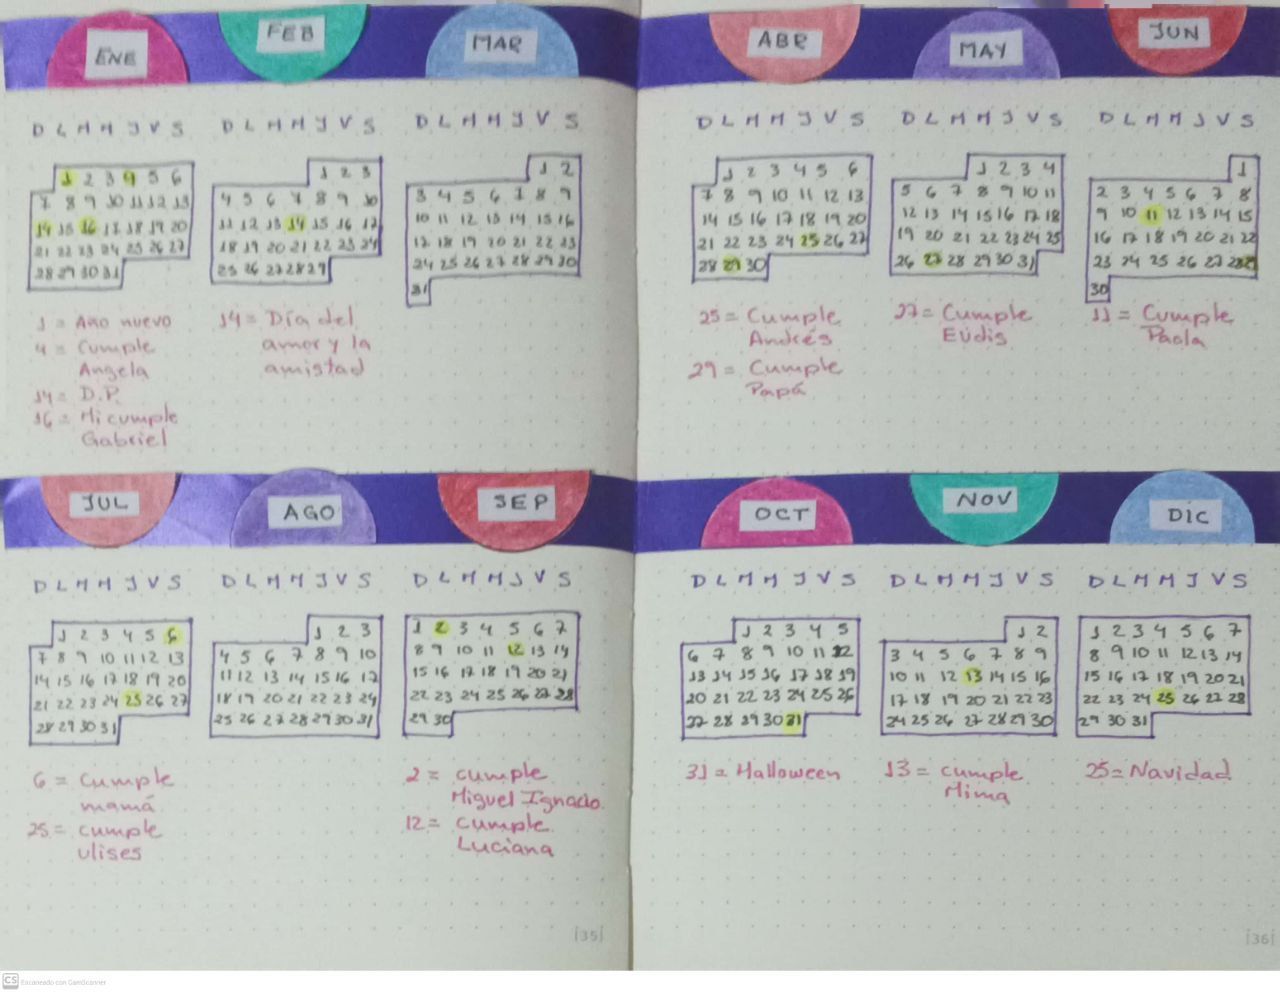 ENE
D L M M J V S
1 2 3 4 5 6
7 8 9 10 11 12 13
14 15 16 17 18 19 20
21 22 23 24 25 26 27
28 29 30 31
1 = Año nuevo
4 = Cumple
Angela
14 = D.P.
16 = Mi cumple
Gabriel
FEB
D L M M J V S
1 2 3
4 5 6 7 8 9 10
11 12 13 14 15 16 17
18 19 20 21 22 23 24
25 26 27 28 29
14 = Día del
amor y la
amistad
MAR
D L M M J V S
1 2
3 4 5 6 7 8 9
10 11 12 13 14 15 16
17 18 19 20 21 22 23
24 25 26 27 28 29 30
31
ABR
D L M M J V S
1 2 3 4 5 6
7 8 9 10 11 12 13
14 15 16 17 18 19 20
21 22 23 24 25 26 27
28 29 30
25 = Cumple
Andrés
29 = Cumple
Papá
MAY
D L M M J V S
1 2 3 4
5 6 7 8 9 10 11
12 13 14 15 16 17 18
19 20 21 22 23 24 25
26 27 28 29 30 31
27 = Cumple
Eudis
JUN
D L M M J V S
1
2 3 4 5 6 7 8
9 10 11 12 13 14 15
16 17 18 19 20 21 22
23 24 25 26 27 28 29
30
11 = Cumple
Paola
JUL
D L M M J V S
1 2 3 4 5 6
7 8 9 10 11 12 13
14 15 16 17 18 19 20
21 22 23 24 25 26 27
28 29 30 31
6 = Cumple
mamá
25 = cumple
Ulises
AGO
D L M M J V S
1 2 3
4 5 6 7 8 9 10
11 12 13 14 15 16 17
18 19 20 21 22 23 24
25 26 27 28 29 30 31
SEP
D L M M J V S
1 2 3 4 5 6 7
8 9 10 11 12 13 14
15 16 17 18 19 20 21
22 23 24 25 26 27 28
29 30
2 = cumple
Miguel Ignacio.
12 = cumple
Luciana
OCT
D L M M J V S
1 2 3 4 5
6 7 8 9 10 11 12
13 14 15 16 17 18 19
20 21 22 23 24 25 26
27 28 29 30 31
31 = Halloween
NOV
D L M M J V S
1 2
3 4 5 6 7 8 9
10 11 12 13 14 15 16
17 18 19 20 21 22 23
24 25 26 27 28 29 30
13 = cumple
Mima
DIC
D L M M J V S
1 2 3 4 5 6 7
8 9 10 11 12 13 14
15 16 17 18 19 20 21
22 23 24 25 26 27 28
29 30 31
25 = Navidad
|35|
|36|
CS Escaneado con CamScanner